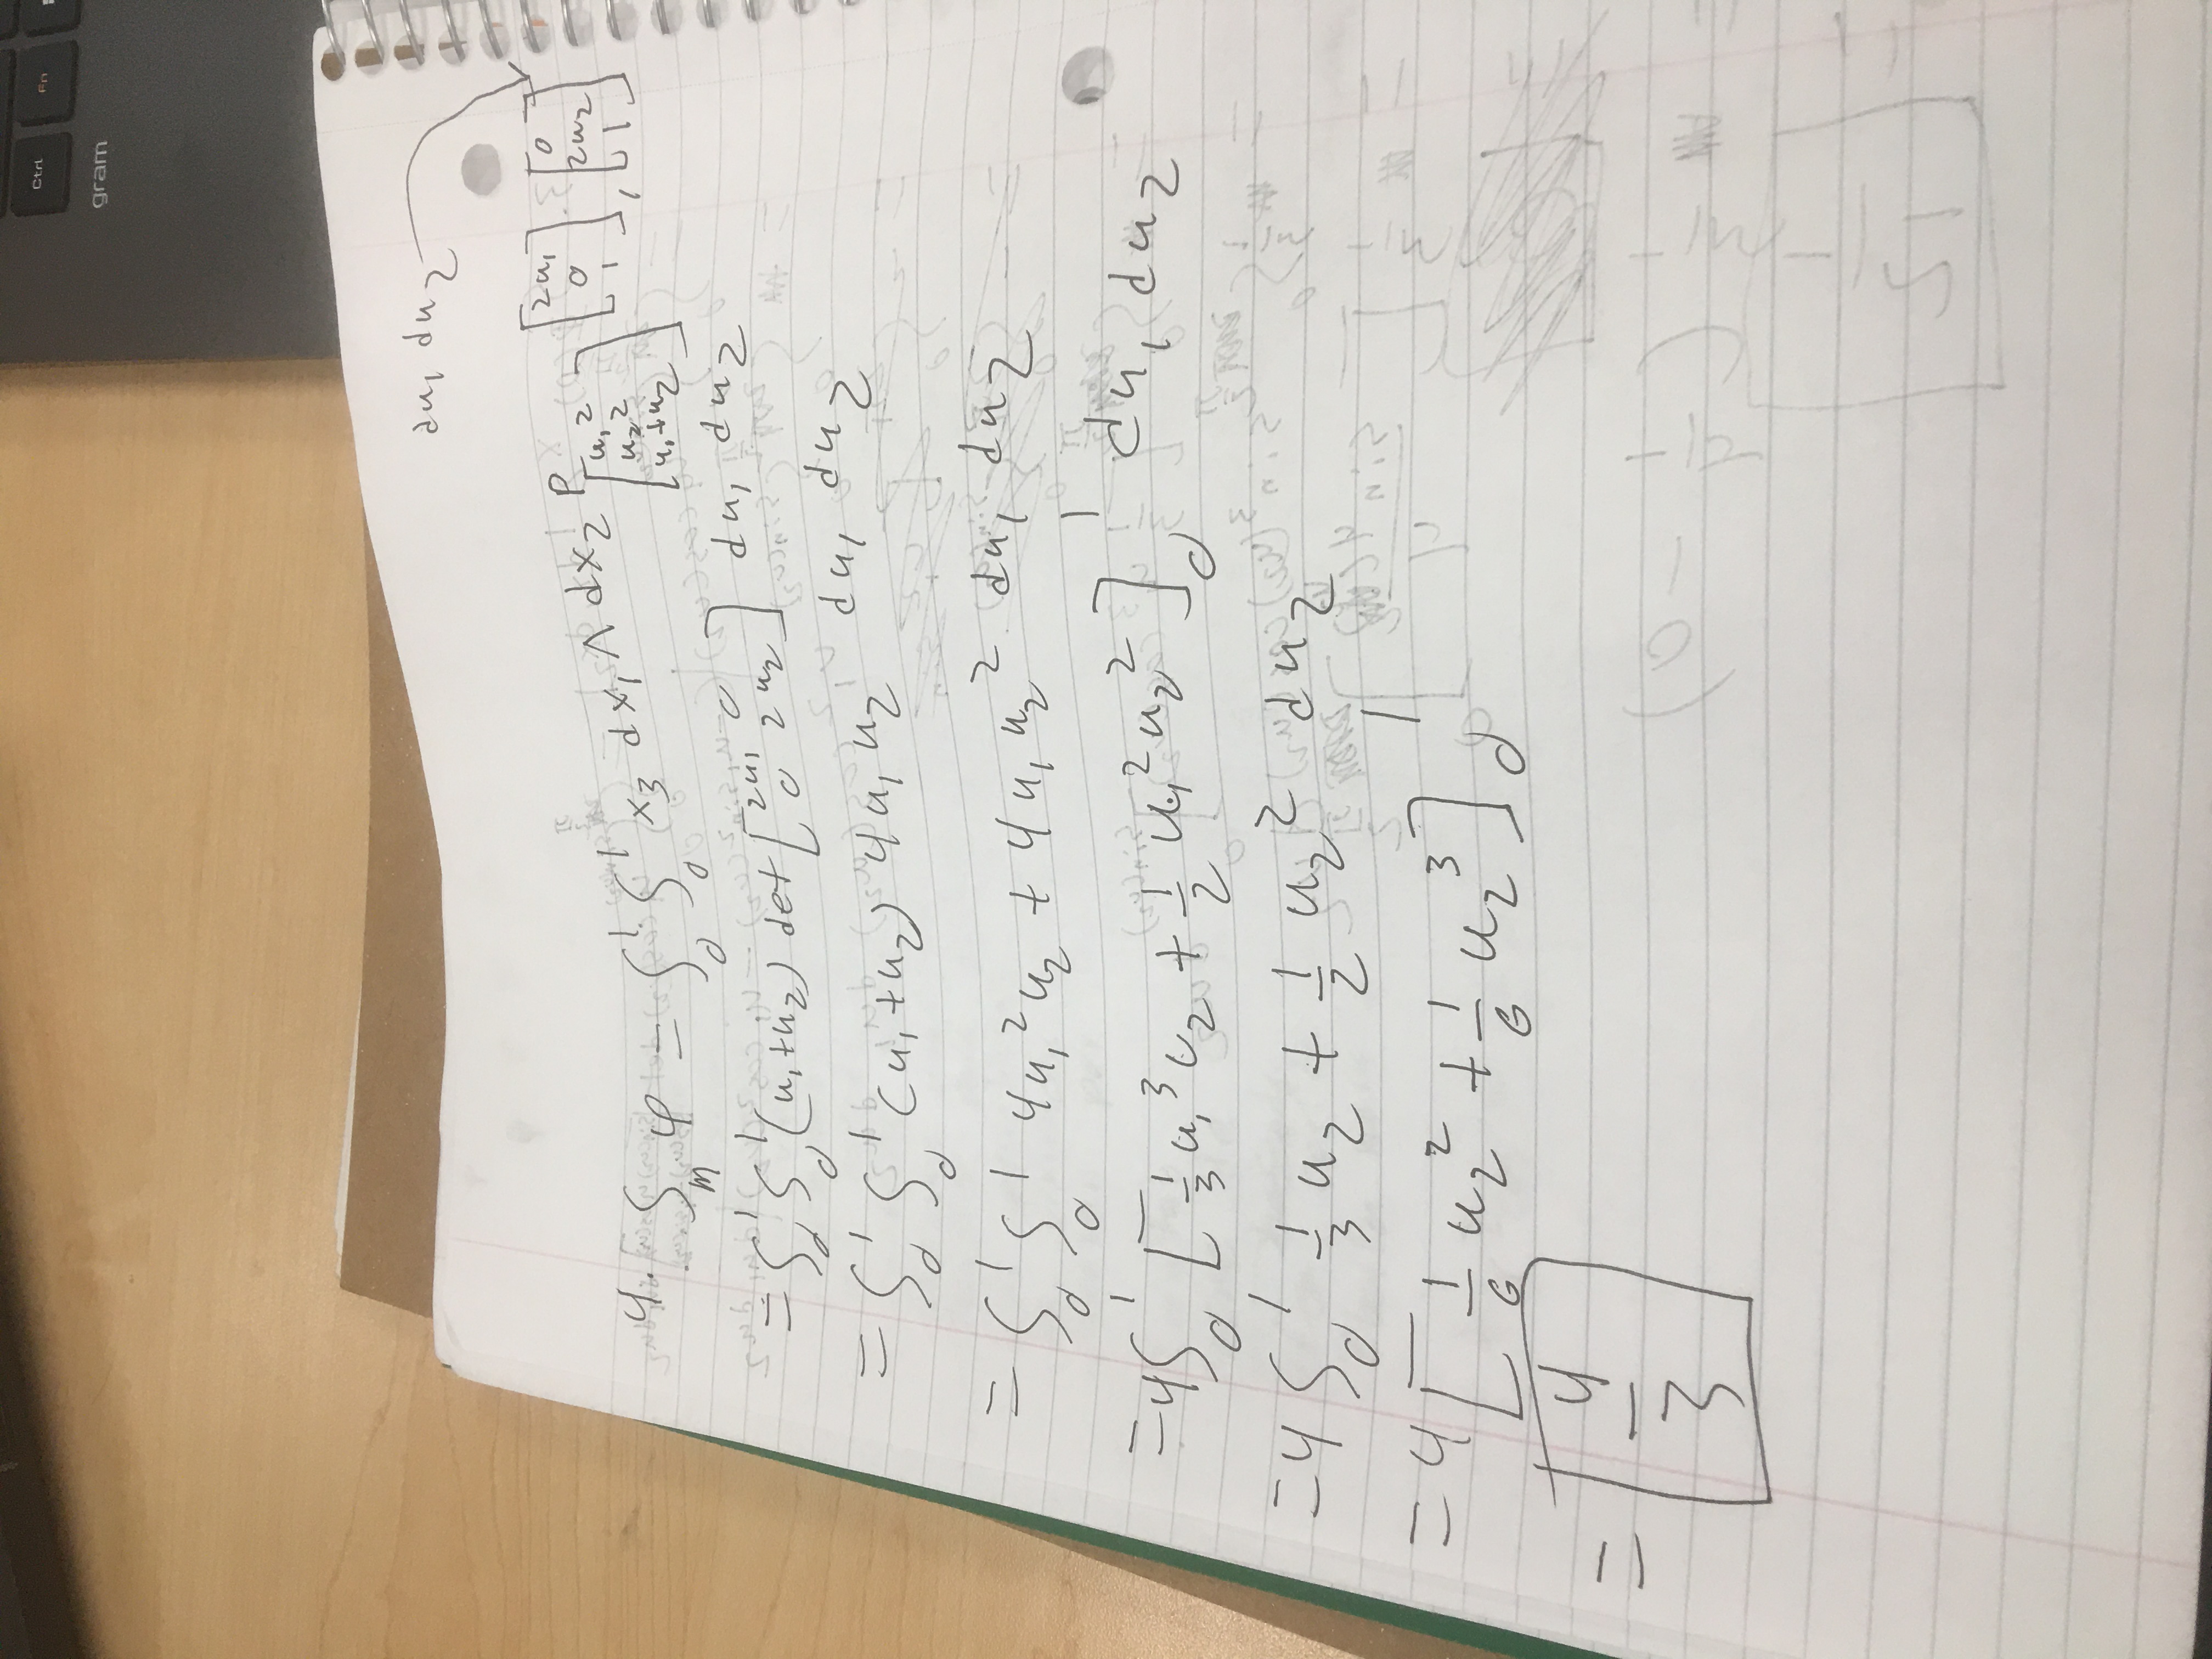 Ctrl Fn
gram
du₁ du₂
4. ∫_M φ = ∫₀¹ ∫₀¹ x₃ dx₁ ∧ dx₂ P_[u₁² u₂² u₁+u₂] [2u₁ 0 1], [0 2u₂ 1]
= ∫₀¹ ∫₀¹ (u₁+u₂) det [2u₁ 0 0 2u₂] du₁ du₂
= ∫₀¹ ∫₀¹ (u₁+u₂) 4u₁u₂ du₁ du₂
= ∫₀¹ ∫₀¹ 4u₁²u₂ + 4u₁u₂² du₁ du₂
= 4∫₀¹ [1/3 u₁³u₂ + 1/2 u₁²u₂²]₀¹ du₁ du₂
= 4 ∫₀¹ 1/3 u₂ + 1/2 u₂² du₂
= 4 [1/6 u₂² + 1/6 u₂³]₀¹
= 4/3